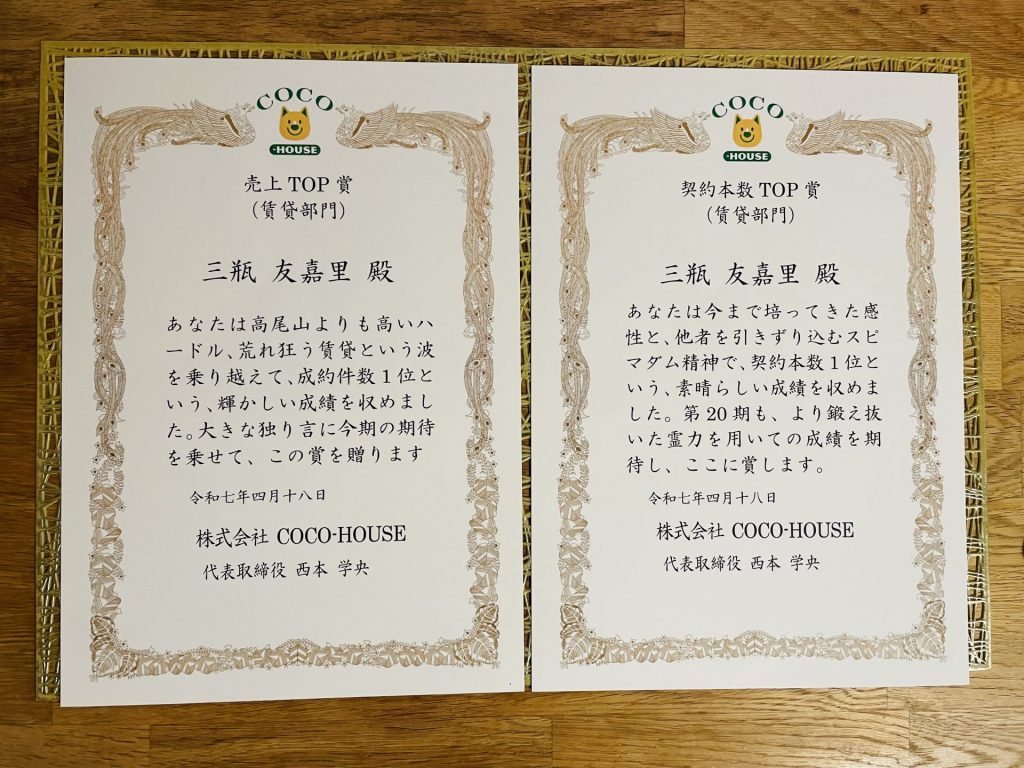 COCO
-HOUSE
売上 TOP 賞
（賃貸部門）
三瓶 友嘉里 殿
あなたは高尾山よりも高いハ
ードル、荒れ狂う賃貸という波
を乗り越えて、成約件数1位と
いう、輝かしい成績を収めまし
た。大きな独り言に今期の期待
を乗せて、この賞を贈ります
令和七年四月十八日
株式会社 COCO-HOUSE
代表取締役 西本 学央
COCO
-HOUSE
契約本数 TOP 賞
（賃貸部門）
三瓶 友嘉里 殿
あなたは今まで培ってきた感
性と、他者を引きずり込むスピ
マダム精神で、契約本数1位と
いう、素晴らしい成績を収めま
した。第20期も、より鍛え抜
いた霊力を用いての成績を期
待し、ここに賞します。
令和七年四月十八日
株式会社 COCO-HOUSE
代表取締役 西本 学央